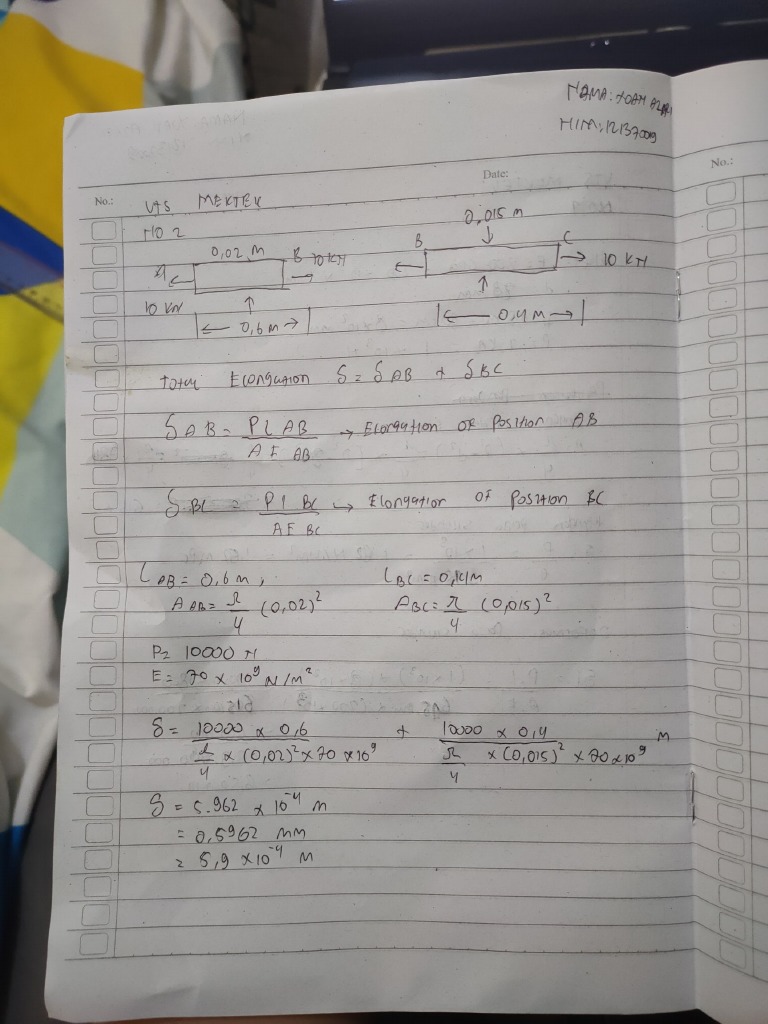 NAMA:
NIM: 12137009
No.:
Date:
No.:
UTS MEKTEK
NO 2
0,015 m
0,02 m
B
C
A
B
10 KN
10 KN
10 KN
0,6 m
0,4 m
Total Elongation δ = δ AB + δ BC
δ AB = PL AB / AE AB → Elongation of Position AB
δ BC = PL BC / AE BC → Elongation of Position BC
L AB = 0,6 m, L BC = 0,4 m
A AB = π/4 (0,02)² A BC = π/4 (0,015)²
P = 10000 N
E = 70 x 10⁹ N/m²
δ = 10000 x 0,6 / π/4 x (0,02)² x 70 x 10⁹ + 10000 x 0,4 / π/4 x (0,015)² x 70 x 10⁹ m
δ = 5.962 x 10⁻⁴ m
= 0,5962 mm
= 5,9 x 10⁻⁴ m